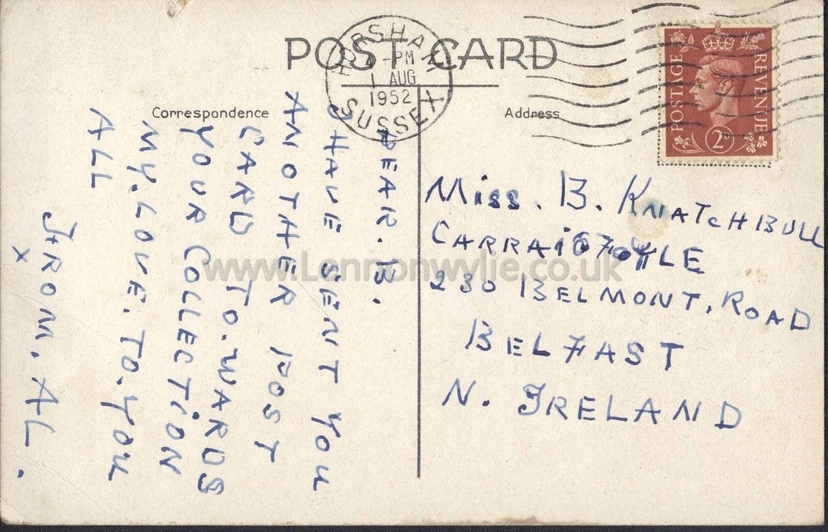 POST CARD
HORSHAM
-PM
1 AUG
1952
SUSSEX
POSTAGE
REVENUE
2D
Correspondence
Address
DEAR. B.
I HAVE SENT YOU
ANOTHER POST
CARD TO.WARDS
YOUR COLLECTION
MY.LOVE.TO.YOU
ALL
FROM. AL.
x
Miss. B. KNATCHBULL
230 BELMONT. ROAD
BELFAST
N. IRELAND
www.Lennonwylie.co.uk